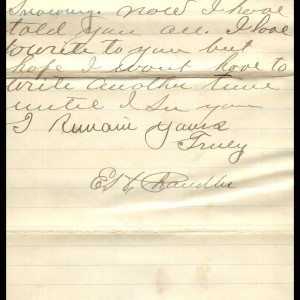 Snowing. now I have
told you all. I love
to write to you but
hope I wont have to
write another time
until I see you
I Remain yours
Truey
Ed